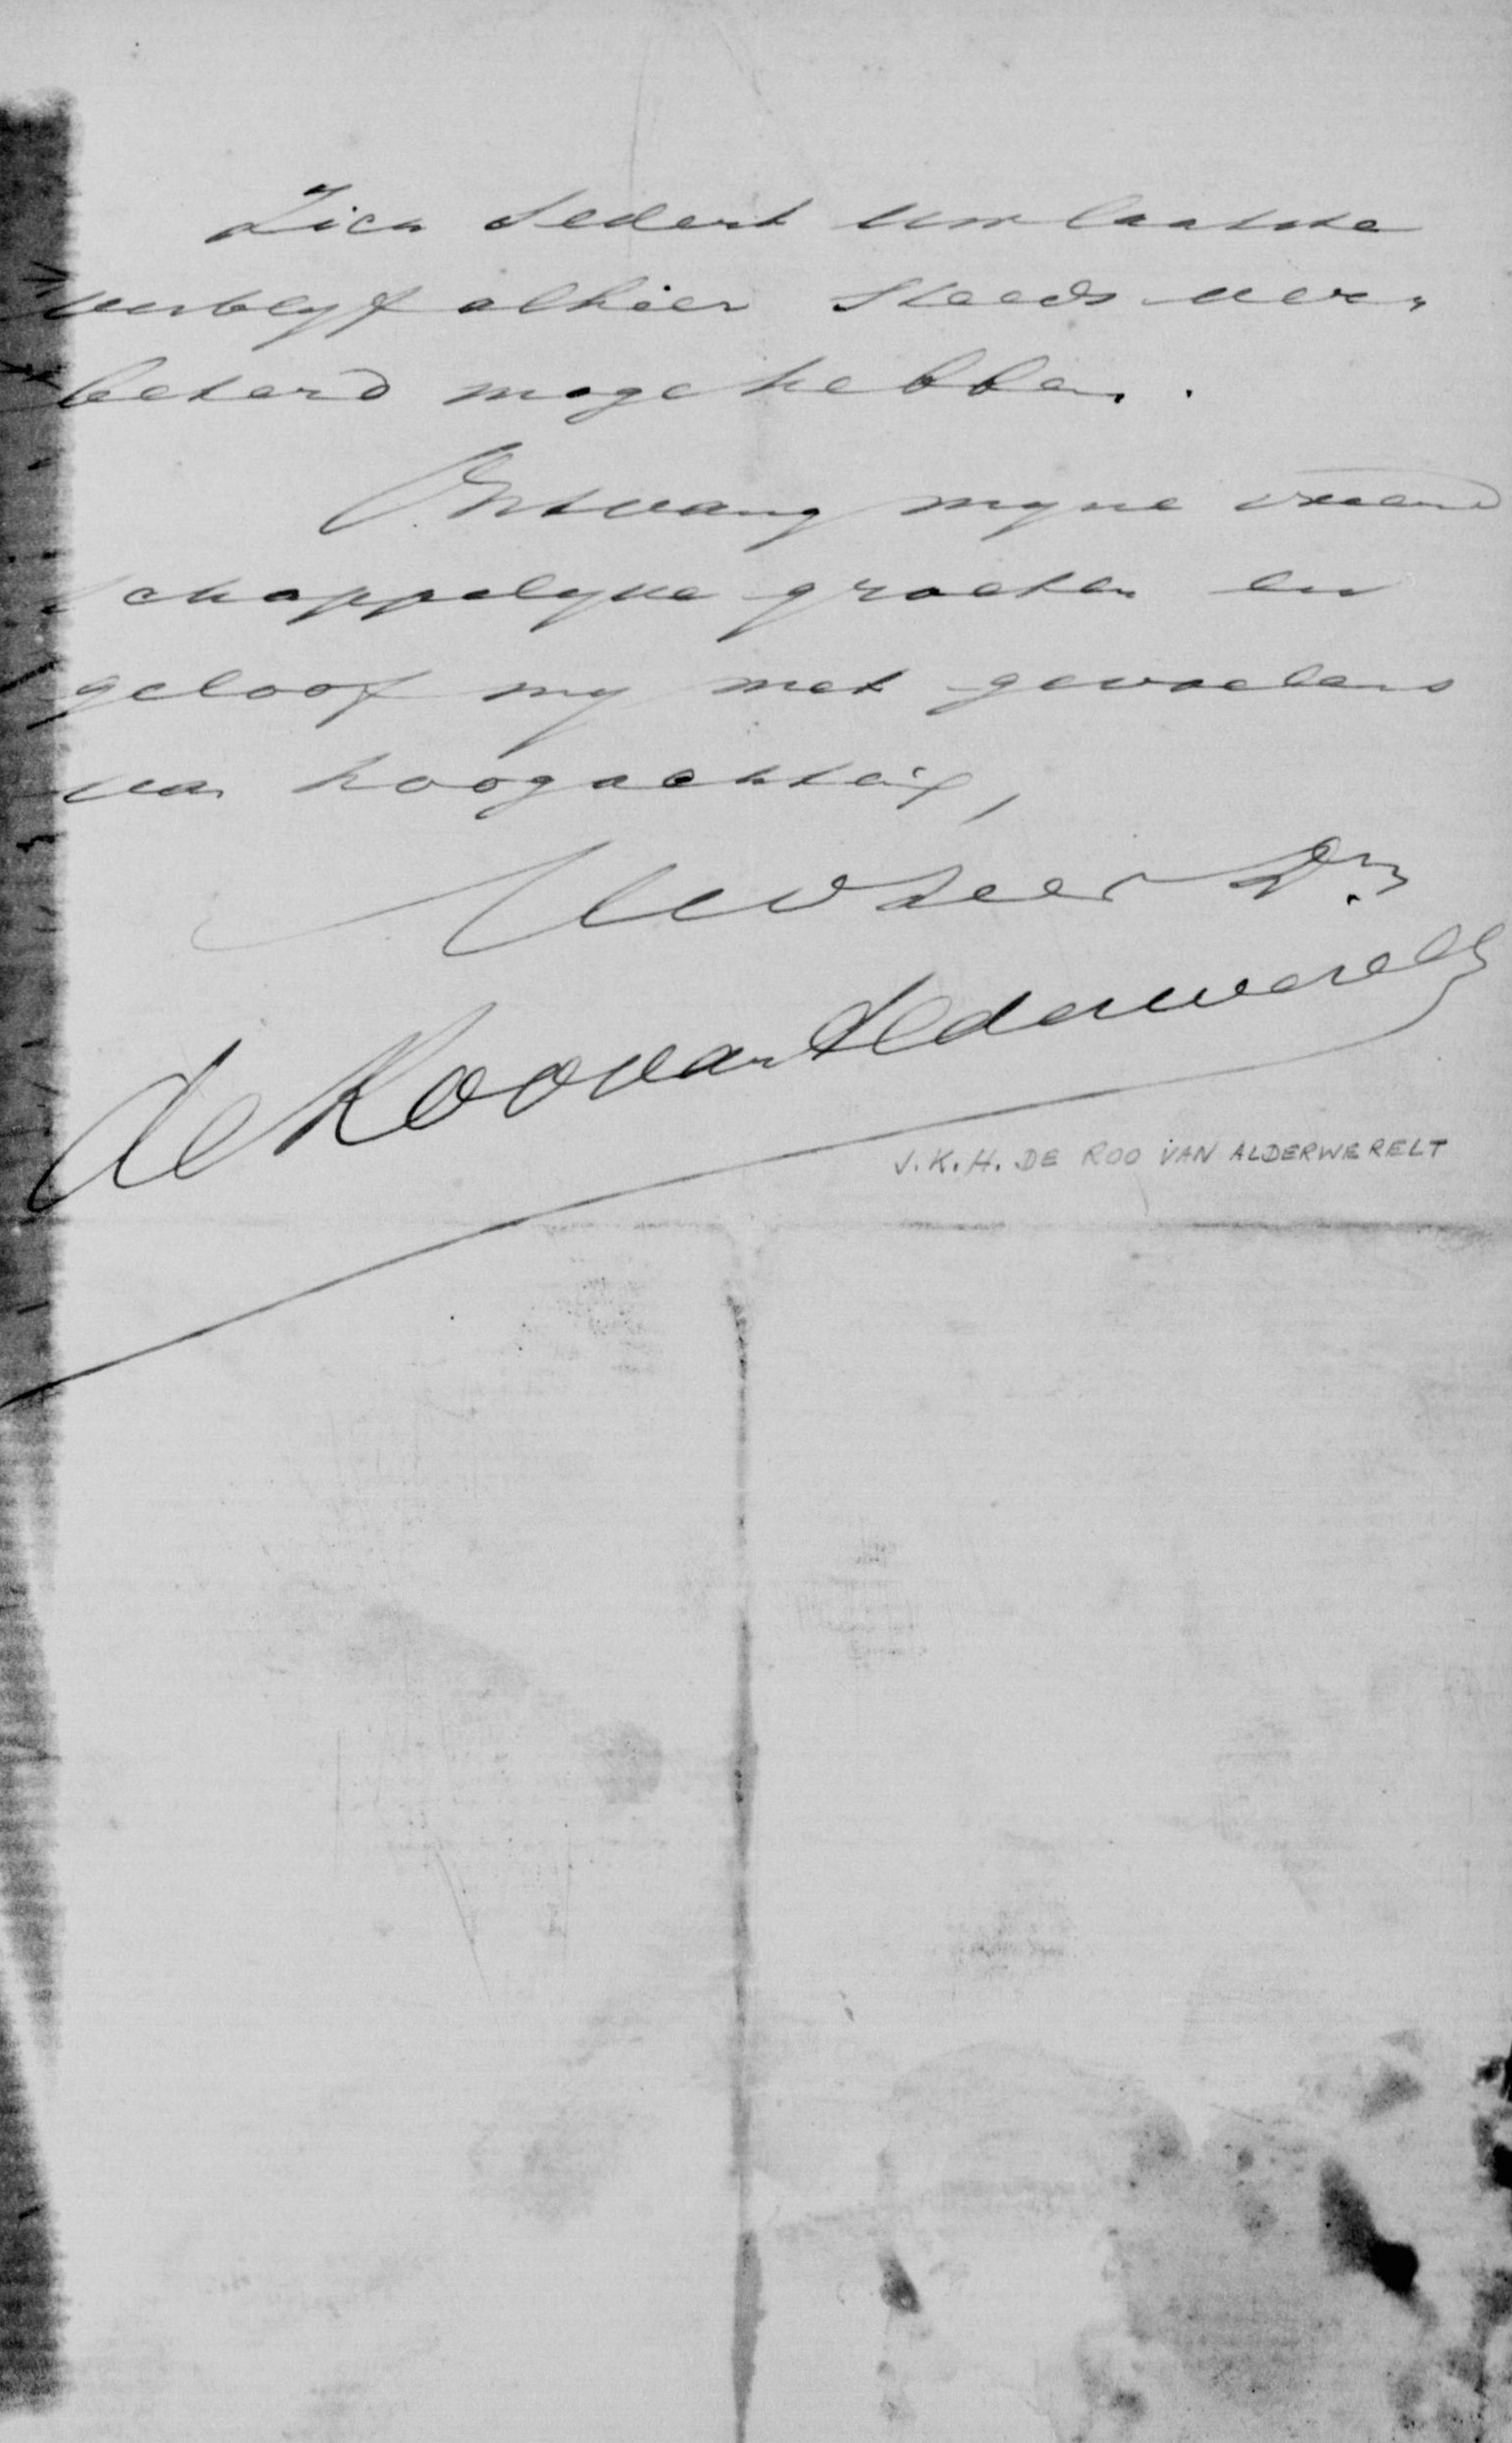 Zich sedert Uw laatste
verblyf alhier steeds ver„
beterd moge hebben.
Ontvang myne vriend
schappelyke groeten en
geloof my met gevoelens
van hoogachting,
Uw zeer Dr
de Roo van Alderwerelt
J.K.H. DE ROO VAN ALDERWERELT